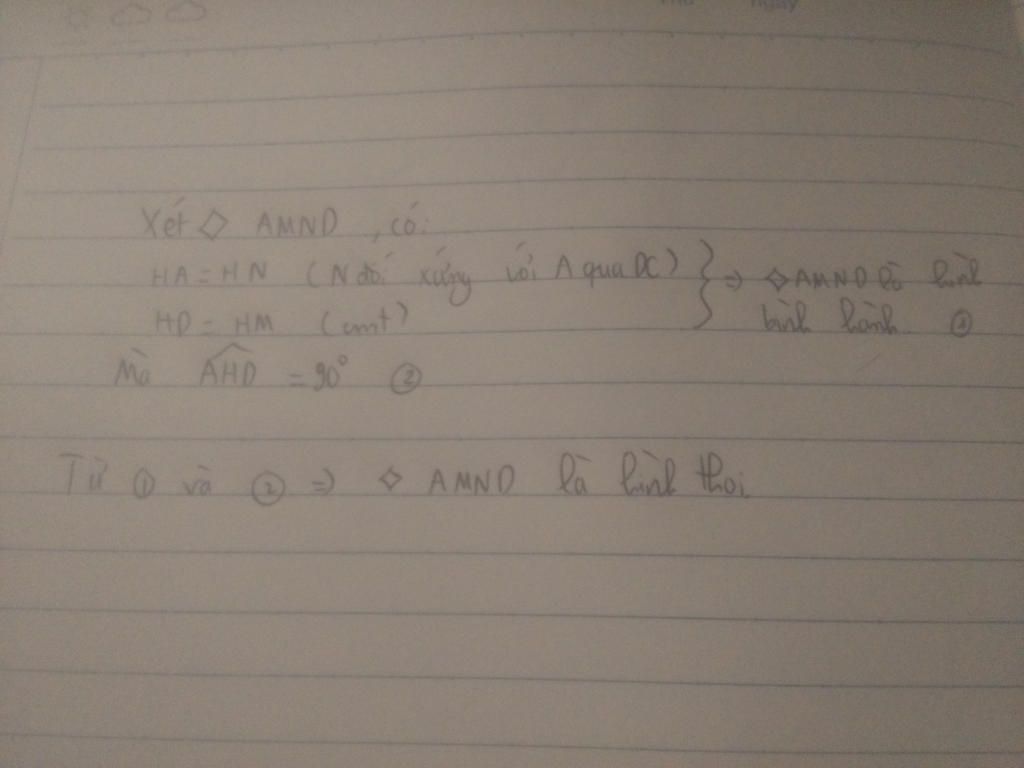 Thứ ngày
Xét ◇ AMND , có:
HA = HN (N đối xứng với A qua DC) } => ◇ AMND là hình
HD = HM (cmt) bình hành ①
Mà AHD = 90° ②
Từ ① và ② => ◇ AMND là hình thoi